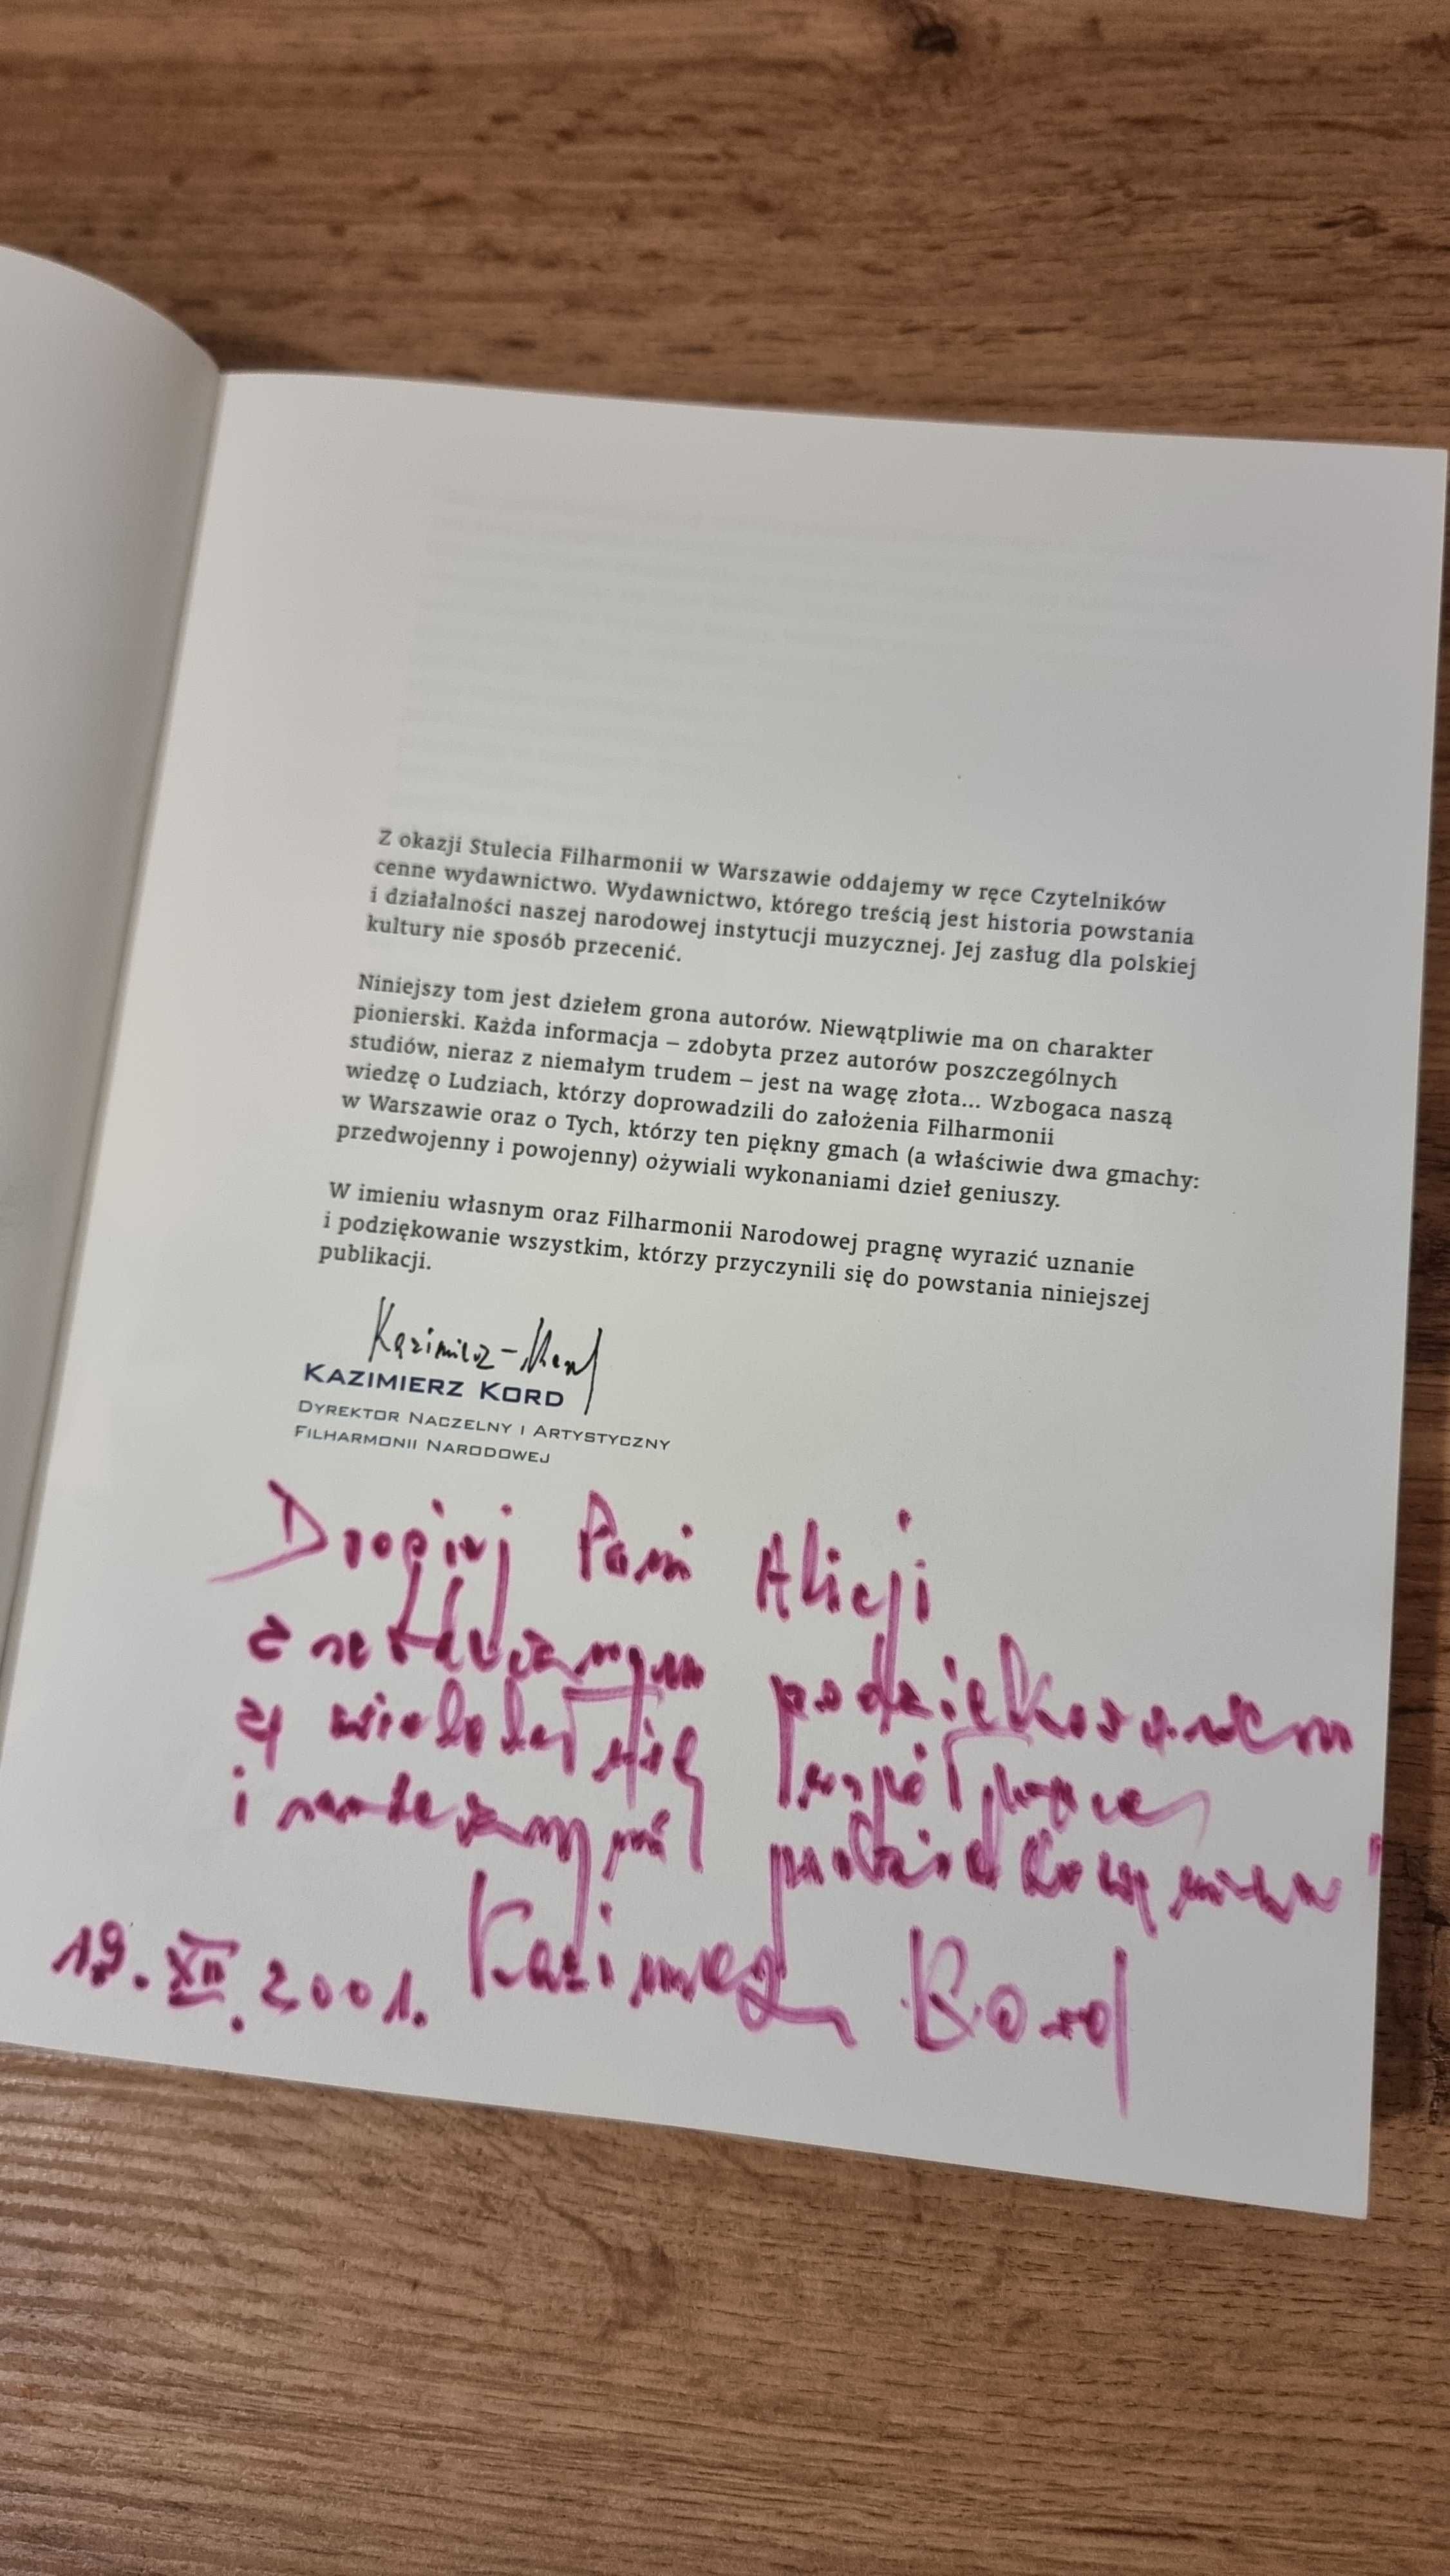 Z okazji Stulecia Filharmonii w Warszawie oddajemy w ręce Czytelników
cenne wydawnictwo. Wydawnictwo, którego treścią jest historia powstania
i działalności naszej narodowej instytucji muzycznej. Jej zasług dla polskiej
kultury nie sposób przecenić.
Niniejszy tom jest dziełem grona autorów. Niewątpliwie ma on charakter
pionierski. Każda informacja – zdobyta przez autorów poszczególnych
studiów, nieraz z niemałym trudem – jest na wagę złota... Wzbogaca naszą
wiedzę o Ludziach, którzy doprowadzili do założenia Filharmonii
w Warszawie oraz o Tych, którzy ten piękny gmach (a właściwie dwa gmachy:
przedwojenny i powojenny) ożywiali wykonaniami dzieł geniuszy.
W imieniu własnym oraz Filharmonii Narodowej pragnę wyrazić uznanie
i podziękowanie wszystkim, którzy przyczynili się do powstania niniejszej
publikacji.
Kazimierz Kord
KAZIMIERZ KORD
DYREKTOR NACZELNY I ARTYSTYCZNY
FILHARMONII NARODOWEJ
Drogiej Pani Alicji
z serdecznym podziękowaniem
za wieloletnią współpracę
i
19.XII.2001. Kazimierz Kord